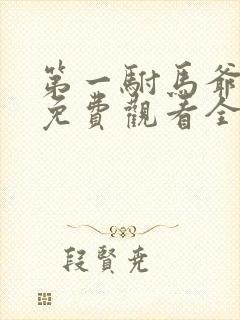 第一駙馬爺
免費觀看全
段賢尭